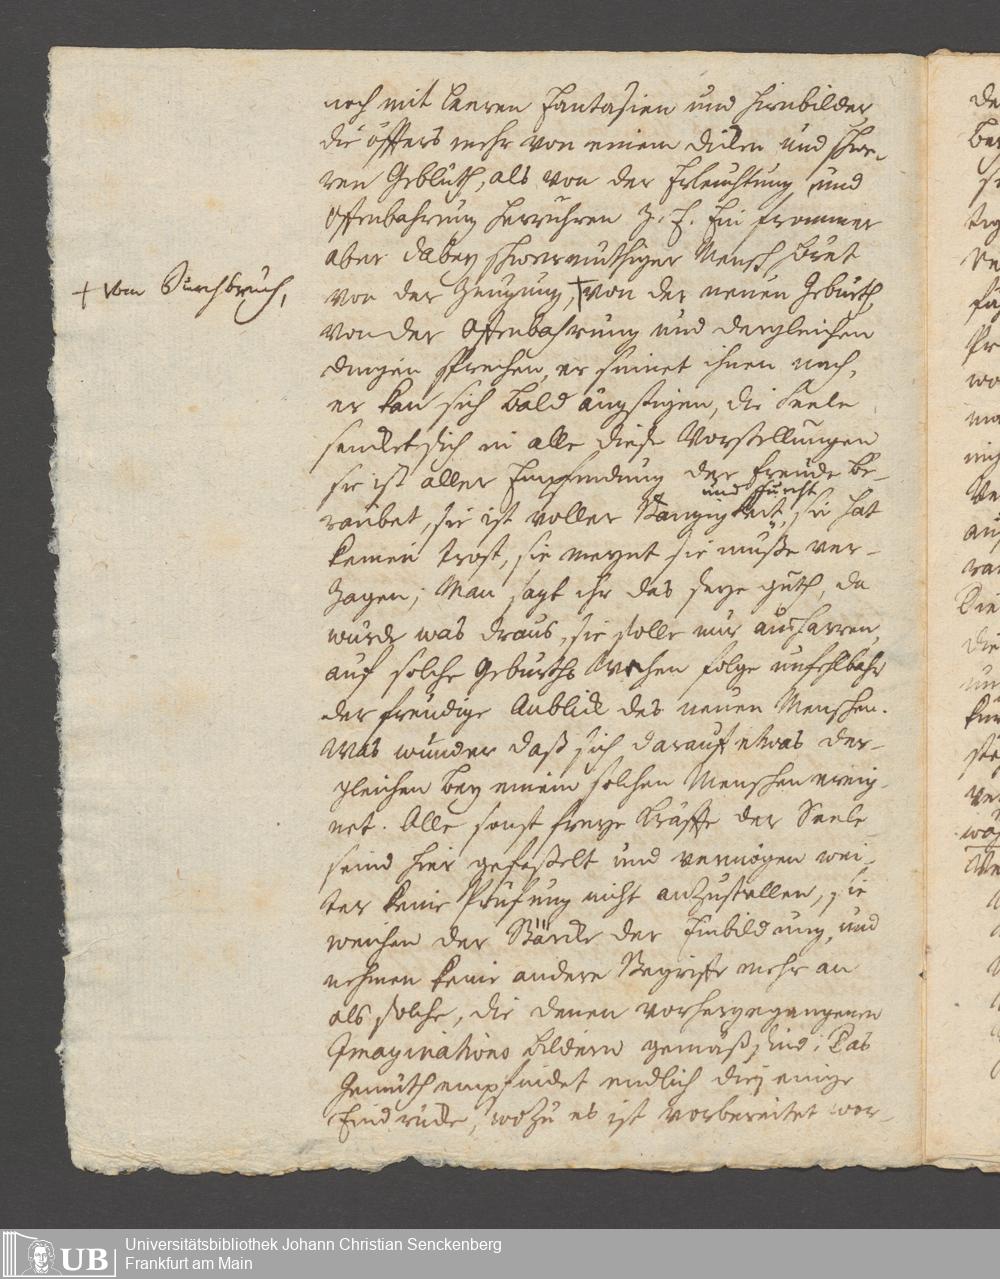 noch mit leeren Fantasien und Hirnbilder,
die öffters mehr von einem dicken und schwe-
ren Geblüth, als von der Erleuchtung und
Offenbahrung herrühren z. E. Ein frommer
aber dabey schwermuthiger Mensch höret
von der Zeugung, †von der neuen Geburth,
† vom Durchbruch,
von der Offenbahrung und dergleichen
dingen sprechen, er sinnet ihnen nach,
er kan sich bald ängstigen, die Seele
sencket sich in alle diese Vorstellungen
sie ist aller Empfindung der freude be-
raubet, sie ist voller Bangigkeit und furcht, sie hat
keinen trost, sie meynt sie müsse ver-
zagen; Man sagt ihr das seye guth, da
würde was draus, sie solle nur ausharren,
auf solche Geburths Wehen folge unfehlbahr
der freudige Anblick des neuen Menschen.
Was wunder daß sich darauf etwas der-
gleichen bey einem solchen Menschen ereig-
net. Alle sonst freye Kräffte der Seele
seind hier gefesselt und vermögen wei-
ter keine Prüfung nicht anzustellen, sie
weichen der Stärcke der Einbildung, und
nehmen keine andere Begriffe mehr an
als solche, die denen vorhergegangenen
Imaginations bildern gemäß sind; Das
Gemüth empfindet endlich diejenige
Eindrücke, wozu es ist vorbereitet wor-
UB
Universitätsbibliothek Johann Christian Senckenberg
Frankfurt am Main